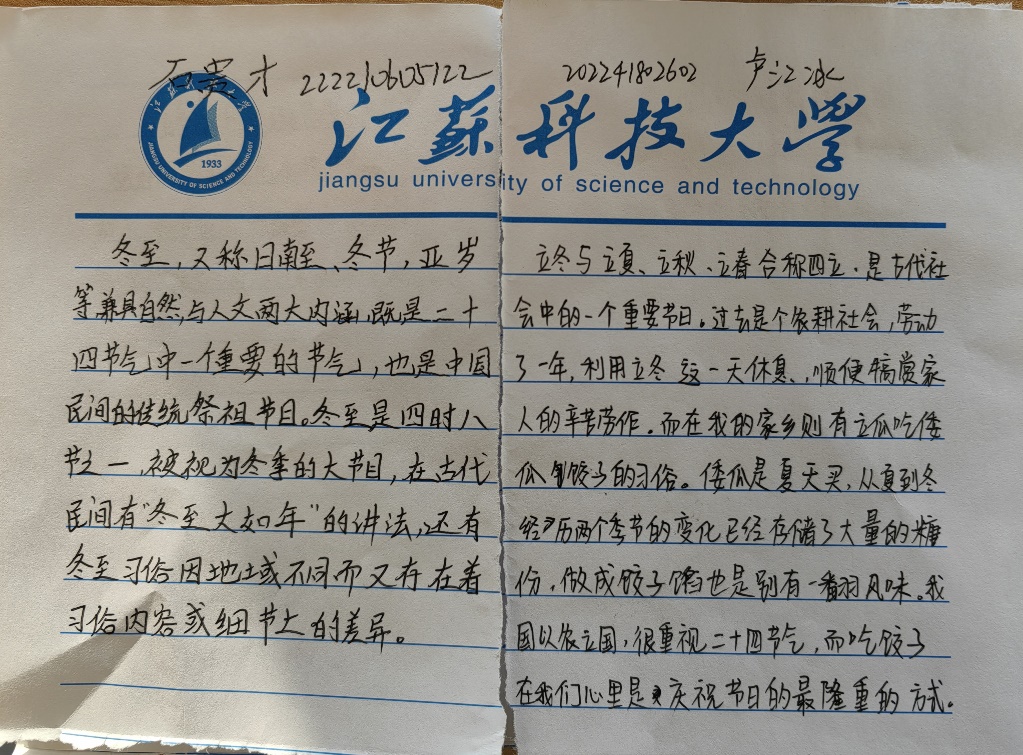 石崇才 222210605122
202241802602 卢江冰
江蘇科技大學
jiangsu university of science and technology
JIANGSU UNIVERSITY OF SCIENCE AND TECHNOLOGY
1933
冬至，又称日南至、冬节，亚岁
等兼具自然与人文两大内涵，既是二十
四节气中一个重要的节气，也是中国
民间的传统祭祖节日。冬至是四时八
节之一，被视为冬季的大节日，在古代
民间有“冬至大如年”的讲法，还有
冬至习俗因地域不同而又存在着
习俗内容或细节上的差异。
立冬与立夏、立秋、立春合称四立，是古代社
会中的一个重要节日。过去是个农耕社会，劳动
了一年，利用立冬这一天休息，顺便犒赏家
人的辛苦劳作。而在我的家乡则有立瓜吃倭
瓜饺子的习俗。倭瓜是夏天买，从夏到冬
经历两个季节的变化已经存储了大量的糖
份，做成饺子馅也是别有一番风味。我
国以农立国，很重视二十四节气，而吃饺子
在我们心里是庆祝节日的最隆重的方式。